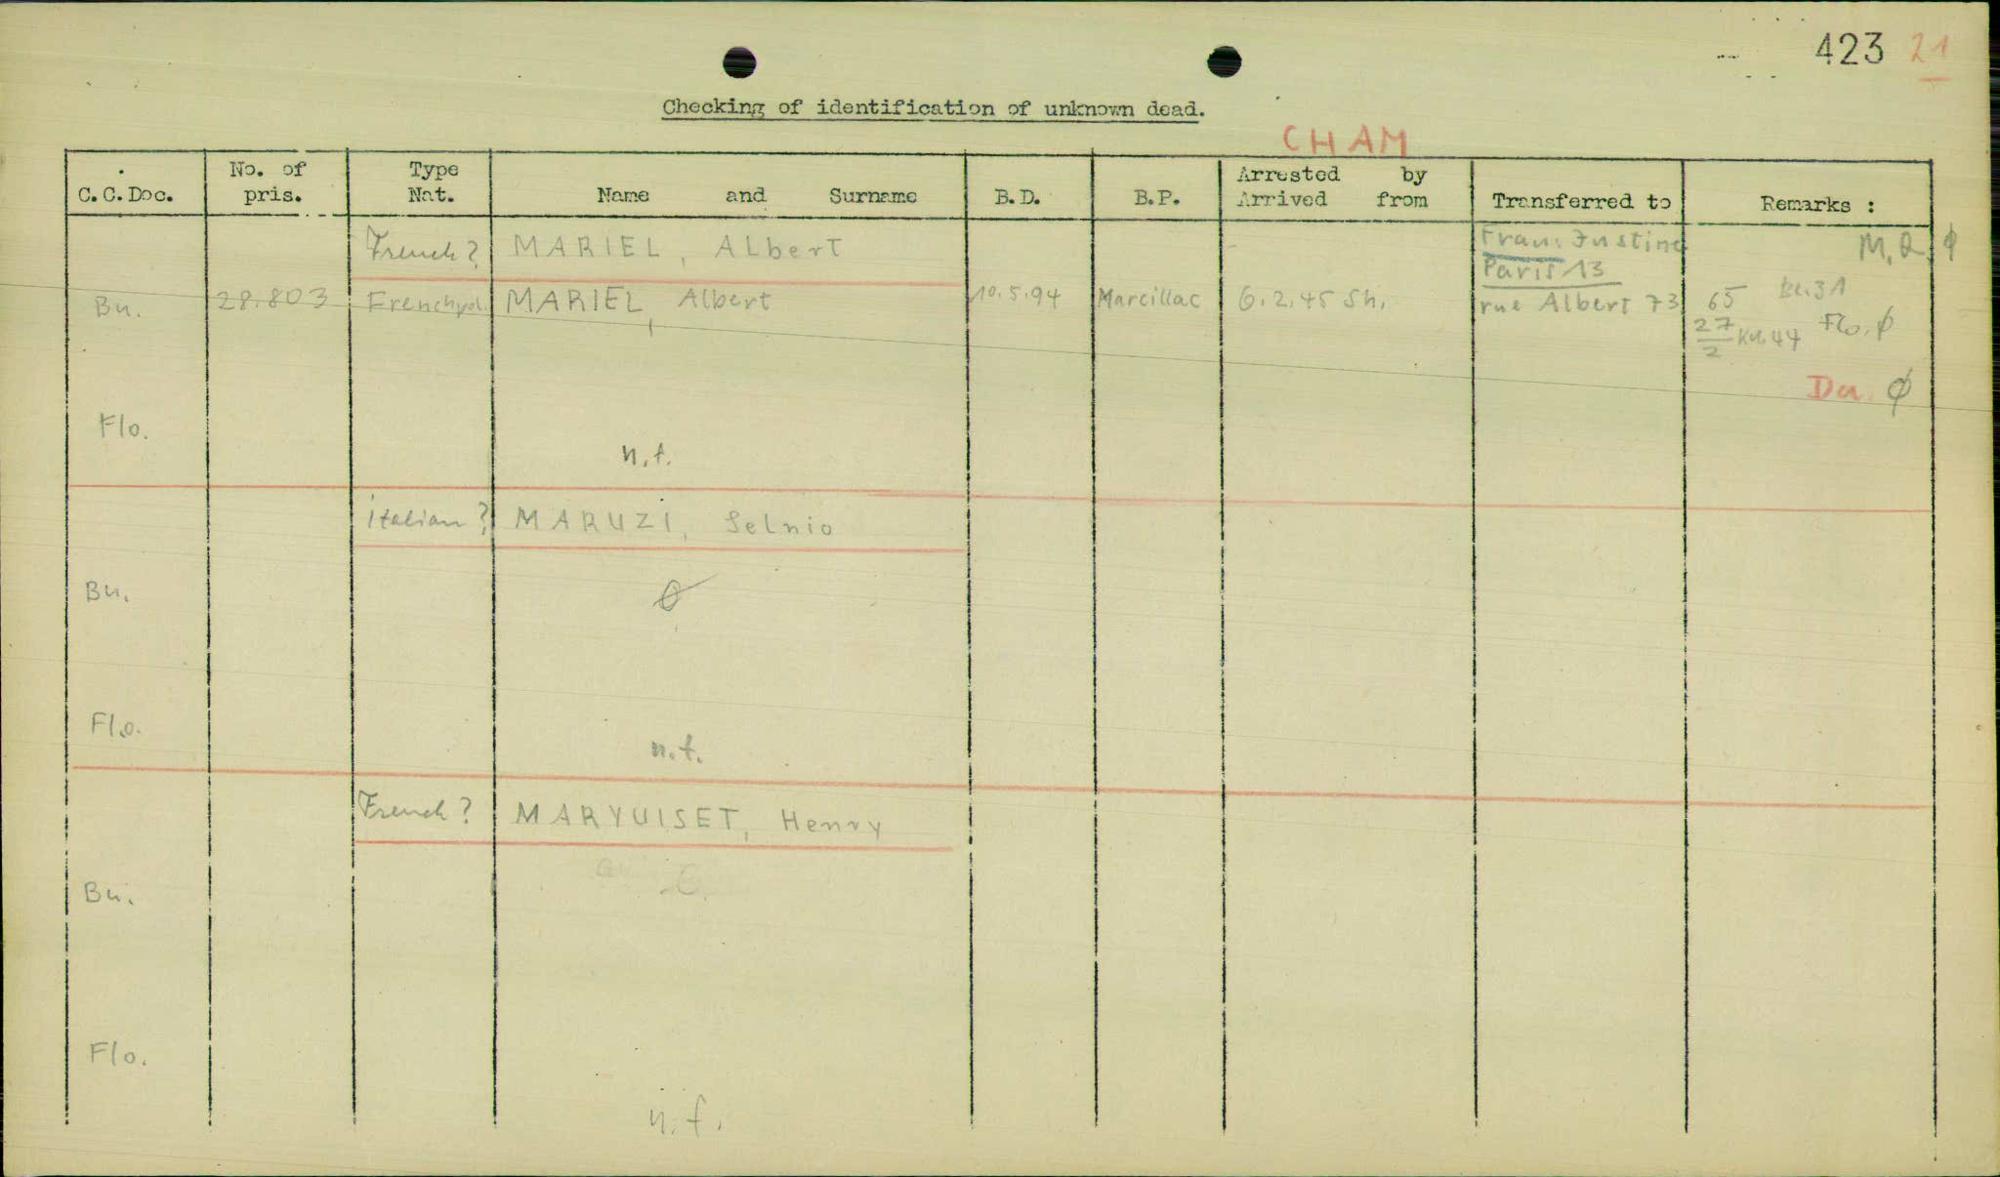 423 21
Checking of identification of unknown dead.
CHAM
C.C.Doc. No. of pris. Type Nat. Name and Surname B.D. B.P. Arrested by Arrived from Transferred to Remarks :
French? MARIEL, Albert Frau: Justine M.Q. ∅
Paris 13
Bu. 28.803 Frenchpol. MARIEL, Albert 10.5.94 Marcillac 6.2.45 Sh. rue Albert 73 65 Bu.31
27/2 Ku.44 Flo. ∅
Da. ∅
Flo.
n.f.
italian? MARUZI, Selnio
Bu. ∅
Flo.
n.f.
French? MARYUISET, Henry
Bu.
Flo.
n.f.